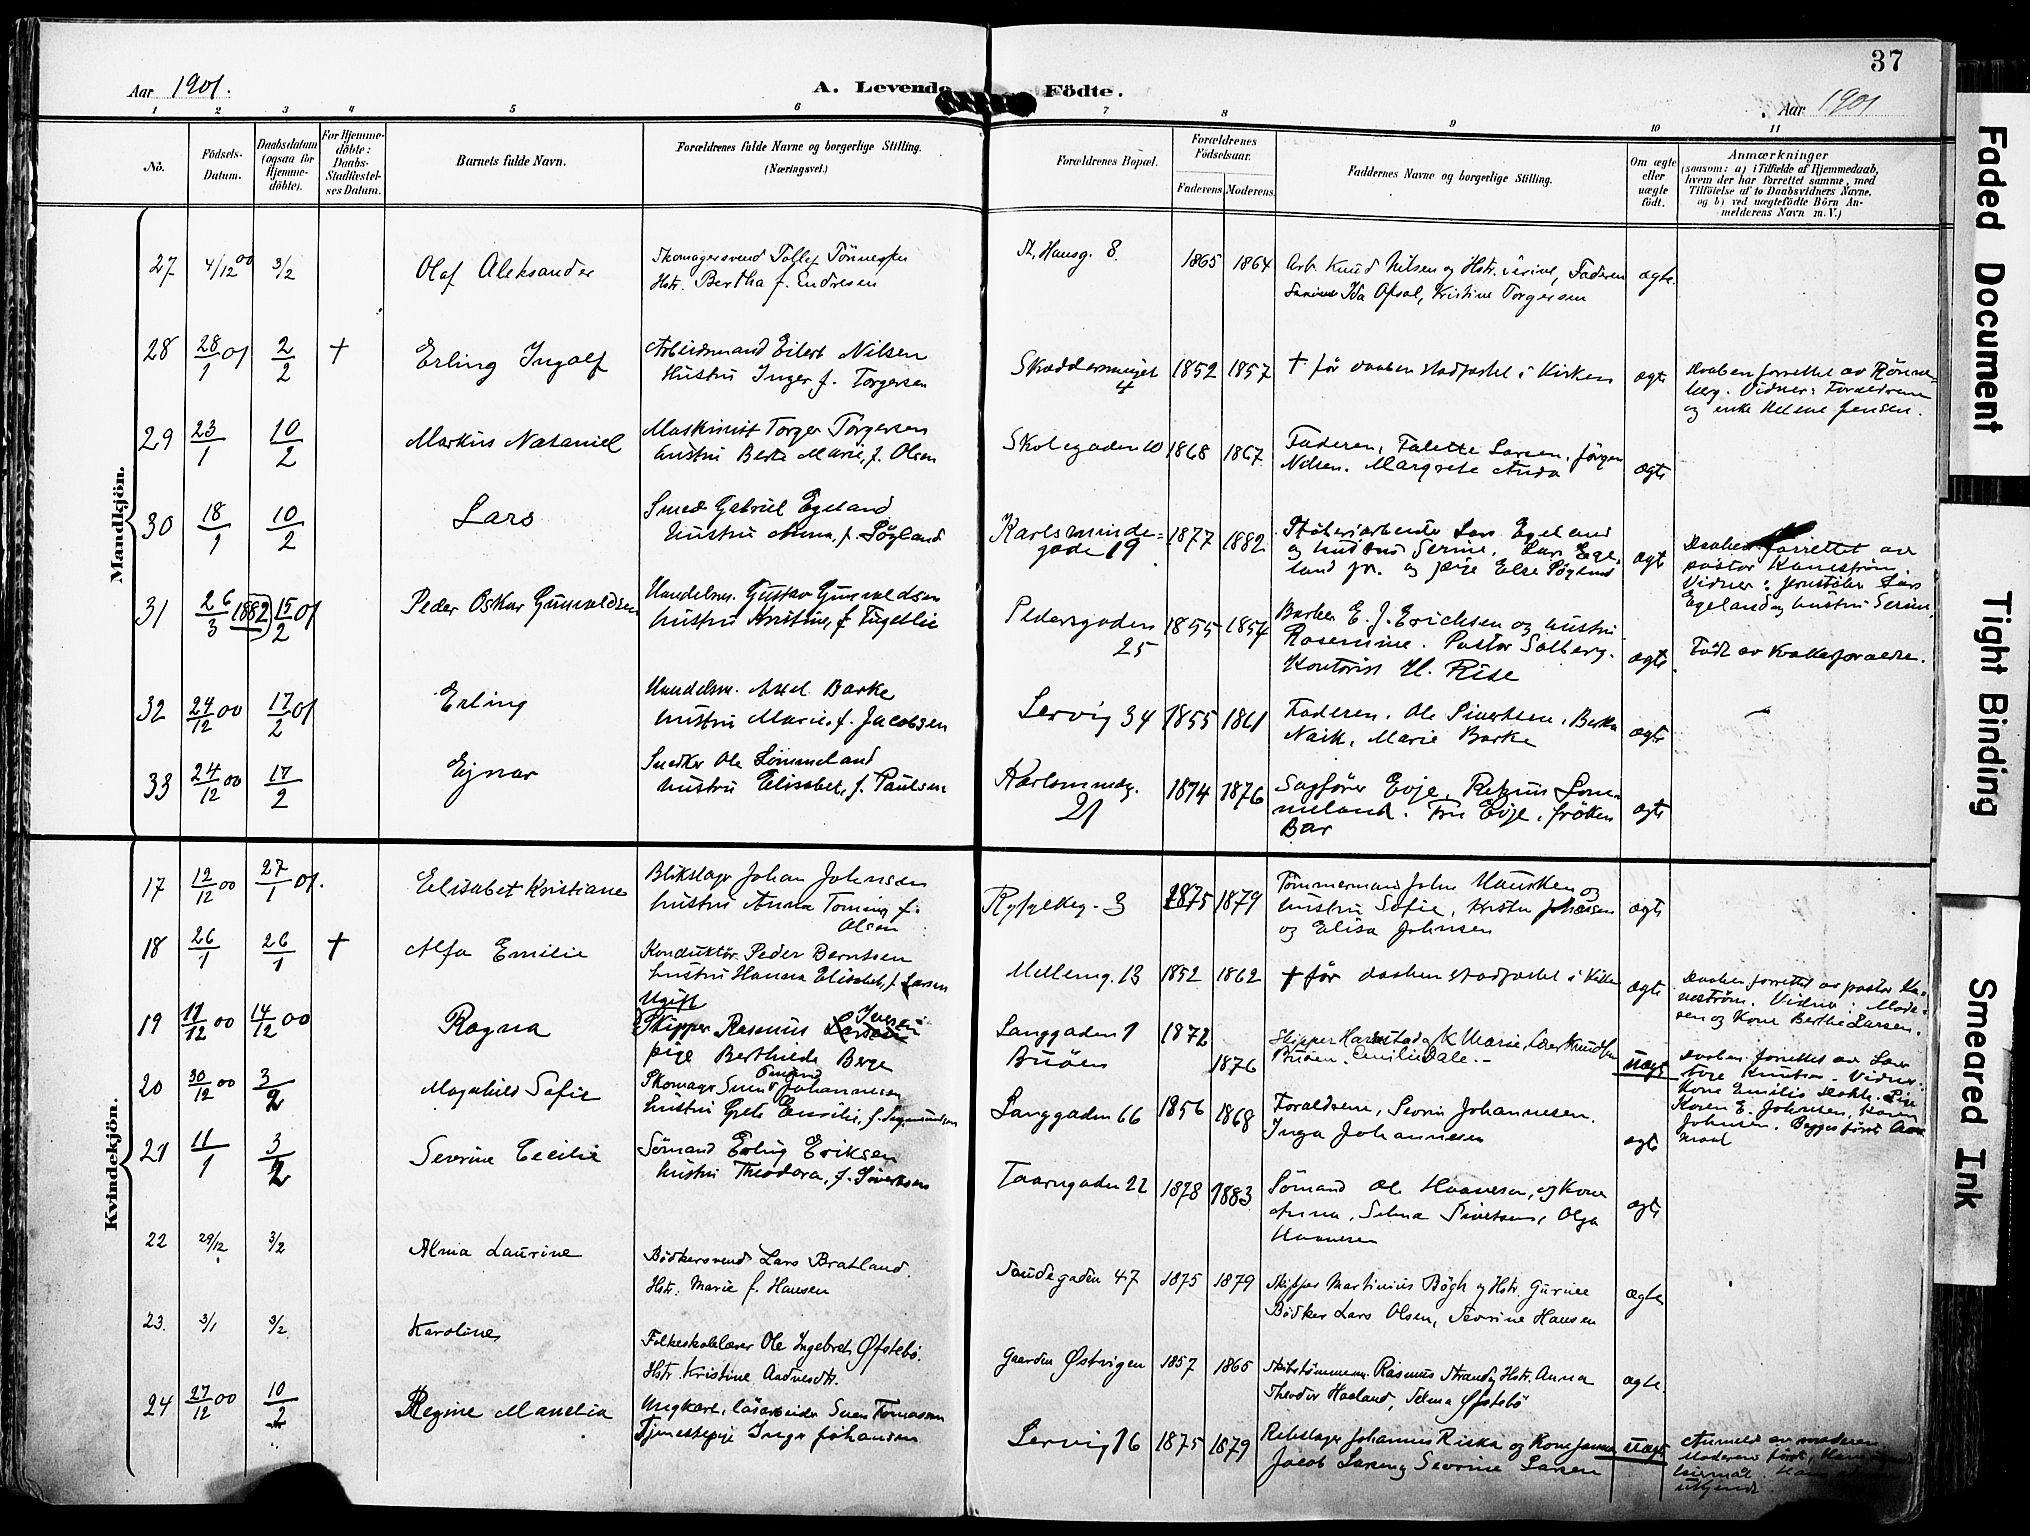 37
Aar 1901.
A. Levende Födte.
Aar 1901
1 2 3 4 5 6 7 8 9 10 11
No.
Födsels-
Datum.
Daabsdatum
(ogsaa for
Hjemme-
döbte).
For Hjemme-
döbte:
Daabs-
Stadfæstel-
ses Datum.
Barnets fulde Navn.
Forældrenes fulde Navne og borgerlige Stilling.
(Næringsvei.)
Forældrenes Bopæl.
Forældrenes
Födselsaar.
Faderens. Moderens.
Faddernes Navne og borgerlige Stilling.
Om ægte
eller
uægte
födt.
Anmærkninger
(saasom: a) i Tilfælde af Hjemmedaab,
hvem der har forrettet samme, med
Tilföielse af to Daabsvidners Navne,
og b) ved uægtefödte Börn An-
melderens Navn m. V.)
Mandkjön.
27 4/12 00 3/2 Olaf Aleksander
Skomagersvend Tollef Tönnesen
Hstr. Bertha f. Endresen
St. Hansg. 8. 1865 1864
Arb. Knud Nilsen og Hstr. Serine, Faderen
Ida Opsal, Kristine Torgersen
ægte
28 28/1 01 2/2 † Erling Ingolf
Arbeidsmand Eilert Nilsen
Hustru Inger f. Torgersen
Skræddersmuget
4
1852 1857
† för daaben stadfæstet i Kirken
ægte
Daaben forrettet av Rönne-
berg. Vidner: Forældrene
og enke Helene Jensen.
29 23/1 10/2 Markus Nataniel
Maskinist Torger Torgersen
hustru Berte Marie, f. Olsen
Skolegaden 10 1868 1867
Faderen, Falette Larsen, Jörgen
Nilsen. Margrete Anda
ægte
30 18/1 10/2 Lars
Smed Gabriel Egeland
hustru Anna, f. Pögland
Karlsminde-
gade 19
1877 1882
Stöberiarbeider Lars Egeland
og hustru Serine. Lars Ege-
land jr. og pige Else Pögland
ægte
Daaben forrettet av
pastor Kaneström.
Vidner: Jernstöber Lars
Egeland og hustru Serine.
31 26/3 1882 15/2 01 Peder Oskar Gunvaldsen
Handelsm. Gustav Gunvaldsen
hustru Kristine, f. Fuglelie
Pedersgaden
25
1855 1854
Barber E. J. Erichsen og hustru
Rosemine. Pastor Solberg.
Kontorist H. Rise
ægte
Födt av kvækerforældre.
32 24/12 00 17/2 01 Erling
Handelsm. Axel Barke
hustru Marie, f. Jacobsen
Lervig 34 1855 1861
Faderen. Ole Sivertsen, Berta
Naik, Marie Barke
ægte
33 24/12 00 17/2 Ejnar
Snedker Ole Lommeland
hustru Elisabet, f. Paulsen
Karlsmindeg.
21
1874 1876
Sagförer Evje, Rasmus Lom-
meland. Fru Evje, fröken
Bar
ægte
Kvindekjön.
17 12/12 00 27/1 01. Elisabet Kristiane
Blikslager Johan Johnsen
hustru Anna Tomine f.
Olsen
Ryfylkeg. 3 1875 1879
Tömmermand John Hausken og
hustru Sofie, Johnsen
og Elisa Johnsen
ægte
18 26/1 26/1 † Alfa Emilie
Konduktör Peder Berntsen
hustru Hanna Elisabet, f. Larsen
Mellemg. 13 1852 1862
† för daaben stadfæstet i Kirken
ægte
Daaben forrettet av pastor Ka-
neström. Vidner: Mode-
ren og Kone Berthe Larsen.
19 11/12 00 14/12 00 Ragna
Ugift
Skipper Rasmus Iversen
pige Berthilde Berge
Langgaden 1
Buöen
1872
1876
Skipper Marie, Knudsen
Buöen. Emilie Dale.
uægte
Daaben forrettet av
Knutsen. Vidner:
Kone Emilie Pige
Karen E. Johnsen,
Johnsen. Begges förste
maal
20 30/12 00 3/2 Magnhild Sofie
Skomager Svend Omund Johannesen
hustru Grete Emilie, f. Sigmundsen
Langgaden 66 1856 1868
Forældrene, Severin Johannesen.
Inga Johannesen
ægte
21 11/1 3/2 Severine Cecilie
Sömand Erling Eriksen
hustru Theodora, f. Sivertsen
Taarngaden 22 1878 1883
Sömand Ole Haavesen, og Kone
Anna, Selma Sivertsen, Olga
Haavesen
ægte
22 29/12 3/2 Alma Laurine
Bödkersvend Lars Bratland.
Hstr. Marie f. Hansen
Saudegaden 47 1875 1879
Skipper Martinius Bögh og Hstr. Gurine
Bödker Lars Olsen, Severine Hansen
ægte
23. 3/1 3/2 Karoline
Folkeskolelærer Ole Ingebret Øfstebö.
Hstr. Kristine Andresdtr.
Gaarden Østvigen 1857 1865
Skibstömmerm. Rasmus Strand og Hstr. Anna
Theodor Haaland, Selma Øfstebö
ægte.
24 27/12 00 10/2 Regine Manelia
Ungkarl, lösarbeider Sven Tomassen
Tjenestepige Inga Johansen
Lervig 16 1875 1879
Rebslager Johannes Riska og Kone Janna
Jacob Larsen og Severine Larsen
uægte
Anmeldt av moderen
Moderens förste,
leiermaal.
Faded Document
Tight Binding
Smeared Ink